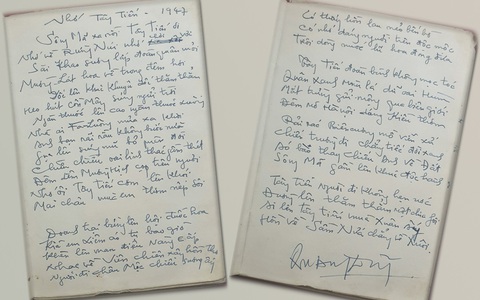 Nhớ Tây Tiến - 1947
Sông Mã xa rồi Tây Tiến ơi
Nhớ về Rừng Núi nhớ chơi vơi
Sài Khao sương lấp đoàn quân mỏi
Mường Lát hoa về trong đêm hơi
Dốc lên khúc khuỷu dốc thăm thẳm
Heo hút cồn mây súng ngửi trời
Ngàn thước lên cao ngàn thước xuống
Nhà ai Pha Luông mưa xa khơi
Anh bạn dãi dầu không bước nữa
Gục lên súng mũ bỏ quên đời
Chiều chiều oai linh thác gầm thét
Đêm đêm Mường Hịch cọp trêu người
Nhớ ôi Tây Tiến cơm lên khói
Mai Châu mùa em thơm nếp xôi
Doanh trại bừng lên hội đuốc hoa
Kìa em xiêm áo tự bao giờ
Khèn lên man điệu nàng e ấp
Nhạc về Viên Chiên xây hồn thơ
Người đi Châu Mộc chiều sương ấy
Có thấy hồn lau nẻo bến bờ
Có nhớ dáng người trên độc mộc
Trôi dòng nước lũ hoa đong đưa
Tây Tiến đoàn binh không mọc tóc
Quân xanh màu lá dữ oai hùm
Mắt trừng gửi mộng qua biên giới
Đêm mơ Hà Nội dáng Kiều thơm
Rải rác Biên cương mồ viễn xứ
Chiến trường đi chẳng tiếc đời xanh
Áo bào thay chiếu Anh về Đất
Sông Mã gầm lên khúc độc hành
Tây Tiến người đi không hẹn ước
Đường lên thăm thẳm một chia phôi
Ai lên Tây Tiến mùa Xuân ấy
Hồn về Sầm Nứa chẳng về xuôi
Quang Dũng